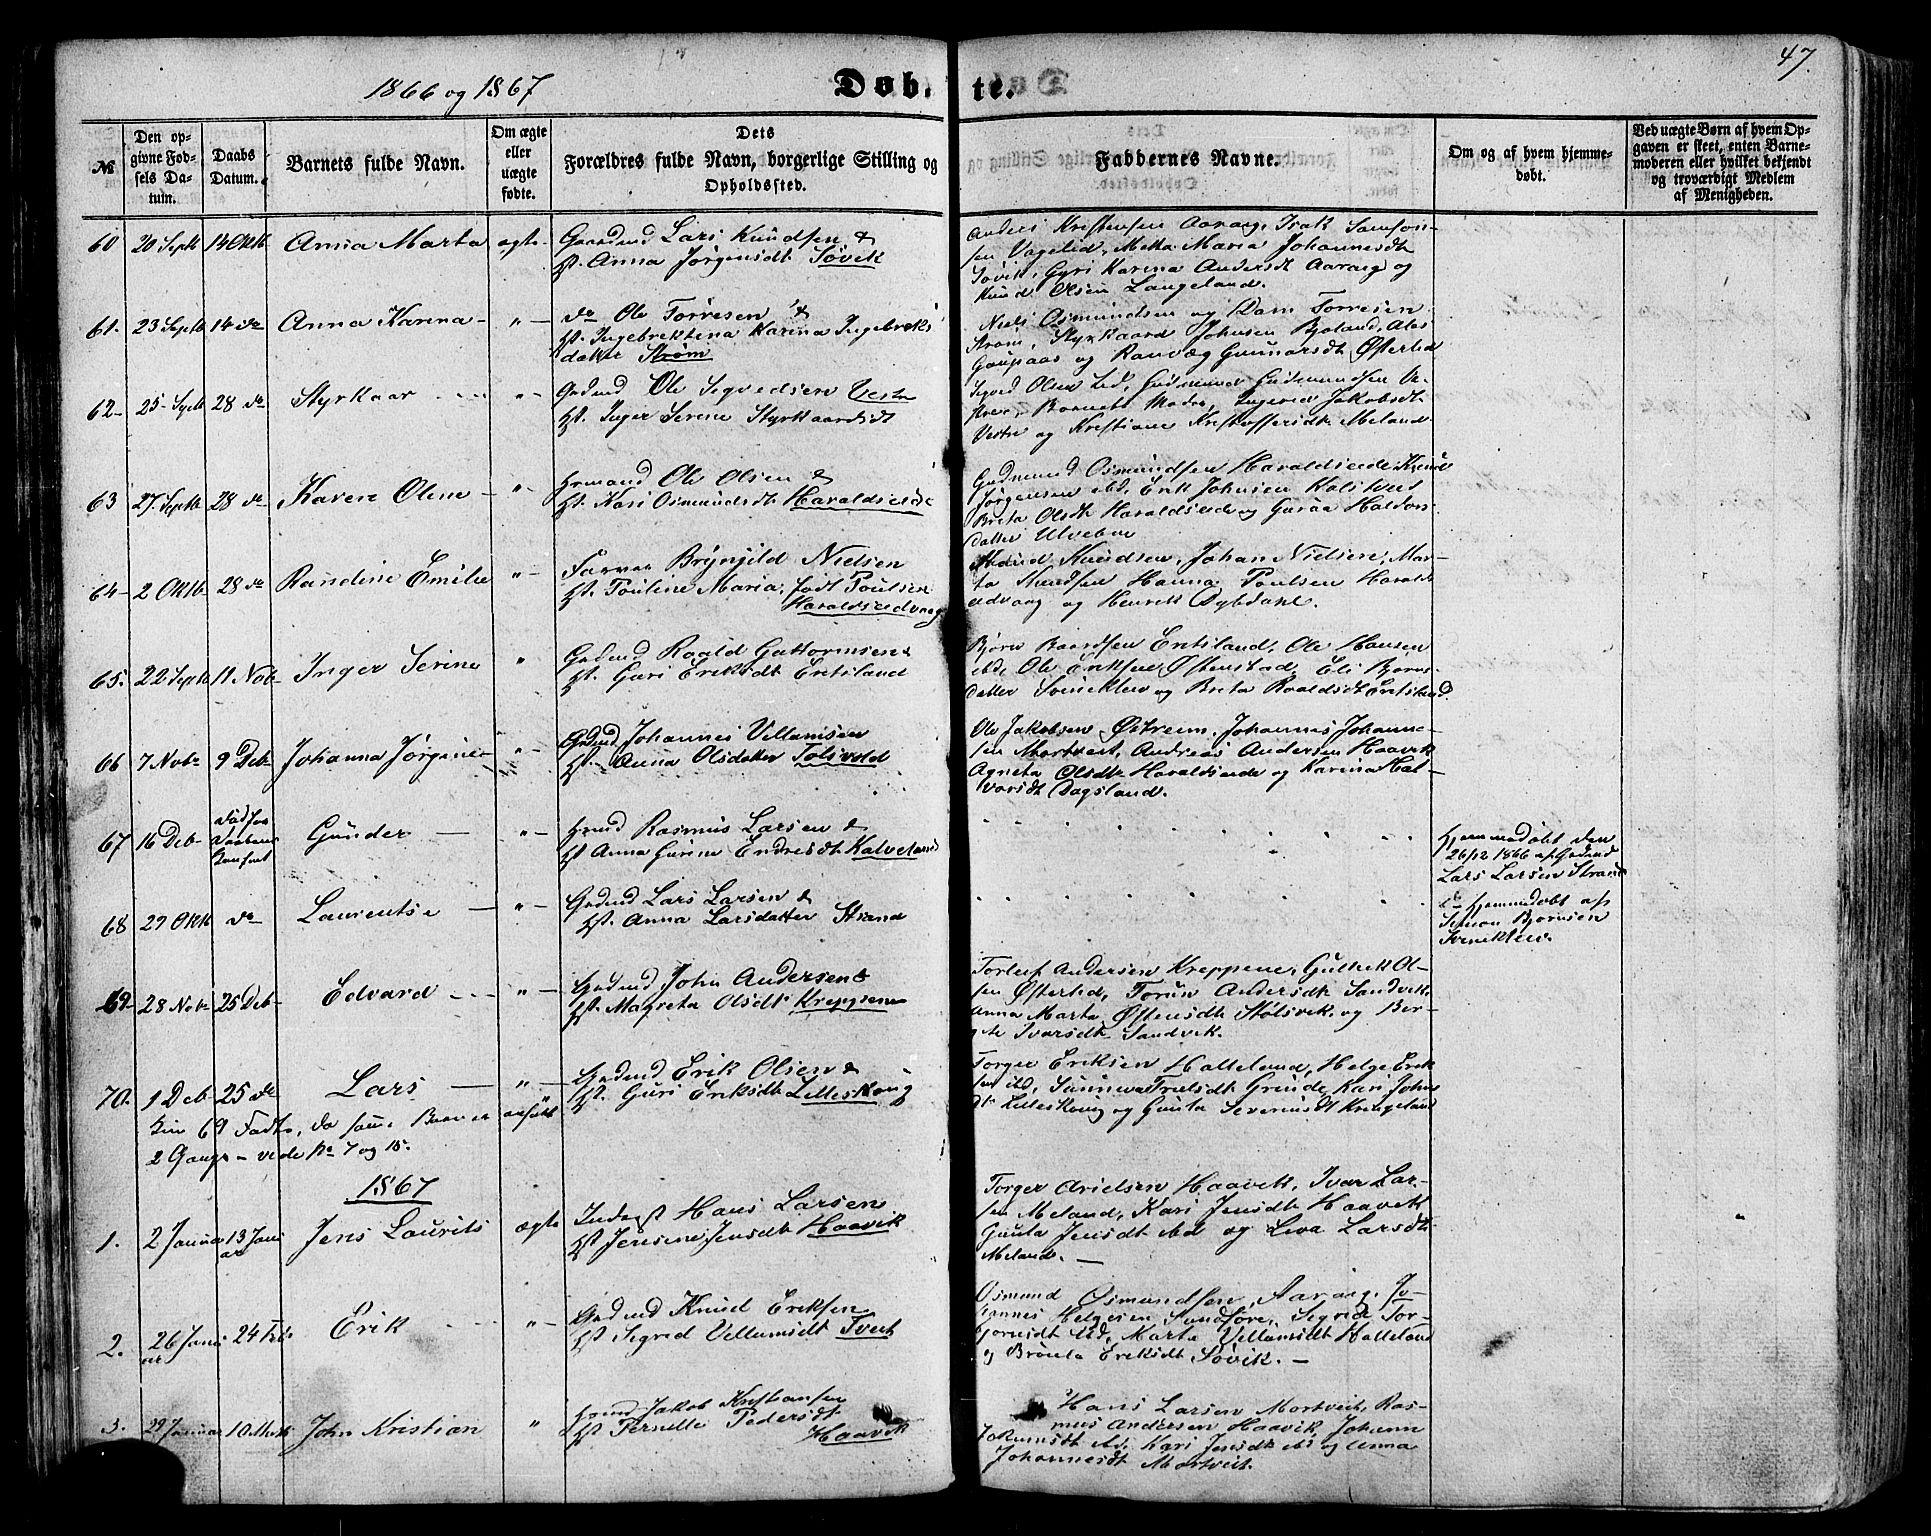 47.
1866 og 1867
Døbte.
№
Den opgivne Fødsels Datum.
Daabs Datum.
Barnets fulde Navn.
Om ægte eller uægte fødte.
Dets Forældres fulde Navn, borgerlige Stilling og Opholdssted.
Faddernes Navne.
Om og af hvem hjemmedøbt.
Ved uægte Børn af hvem Opgaven er skeet, enten Barnemoderen eller hvilket bekjendt og troværdigt Medlem af Menigheden.
60 20 Septb 14 Oktb Anna Marta ægte
Gaardmd Lars Knudsen &
H. Anna Jørgensdt Søvik
Anders Kristensen Aarag, Isak Samson-
sen Vagelid, Metta Maria Johannesdt
Søvik, Gyri Karina Andersdt Aarag og
Knud Olsen Langeland.
61. 23 Septb 14 do Anna Karina – " –
do Ole Torresen &
H. Ingebrektina Karina Ingebreks
datter Strøm
Niels Osmundsen og Dam Torresen
Strøm, Styrkaard Johnsen Bjoland, Ales
Gaupaas og Ranvæg Gunnarsdt Østerlid
62 – 25 Septb 28 do Styrkaar " –
Grdmd Ole Segvedsen Vestre
H. Inger Serine Styrkaardsdt
Segved Olsen Lid, Gudmund Gudmundsen Ve-
stre, Barnets Moder, Ingerid Jakobsdt
Vestre og Kristiane Kristoffersdt Meland
63 27 Septb 28 do Karen Oline – " –
Hrmand Ole Olsen &
H. Kari Osmundsdt Haraldseide
Gudmund Osmundsen Haraldseide Knud
Jørgensen ibd, Erik Johnsen Kalstveit
Breta Olsdt Haraldseide og Guraa Haldors
datter Ulveboe
64 – 2 Oktb 28 do Randine Emilie " –
Farver Brynjild Nielsen
H. Pouline Maria, født Poulsen
Haraldseidvaag
Knud Knudsen, Johan Nielsen, Mar-
ta Knudsen Hanna Poulsen Harald
eidvaag og Henrik Dybdahl.
65. 22 Septb 11 Nob Inger Serine "
Grdmd Roald Guttormsen &
H. Guri Eriksdt Entsland
Bjørn Baardsen Entsland, Ole Hansen
ibd, Ole Eriksen Østenstad, Eli Bjørns
datter Svineklev og Breta Roaldsdt Entsland
66 7 Nobr 9 Deb Johanna Jørgine – " –
Grdmd Johannes Vellumsen
H. Anna Olsdatter Tolsvold
Ole Jakobsen Østreim, Johannes Johanne-
sen Mortveit, Andreas Andersen Haavik
Agneta Olsdt Haraldseide og Karina Hal-
vorsdt Dagsland.
67 16 Deb Gunder – " –
Hrmd Rasmus Larsen &
H. Anna Gurine Endresdt Kalveland
Hjemmedøbt den
26/12 1866 af Grdmd
Lars Larsen Strand
68 29 Oktb do Laurentse – " –
Grdmd Lars Larsen &
H. Anna Larsdatter Strand
do Hjemmedøbt af
Simon Bjørnsen
Svineklev.
69 28 Nobr 25 Deb Edvard " –
Grdmd John Andersen &
H. Magreta Olsdt Kreppene
Torleif Andersen Kreppene, Gulleik Ol-
sen Østerlid, Torun Andersdt Sandvik
Anna Marta Østensdt Stølsvik, og Ber-
gete Ivarsdt Sandvik.
70. 1 Deb 25 do Lars – " –
Grdmd Erik Olsen &
H. Guri Eriksdt Lilleskoug
Torger Eriksen Halleland, Helge Erik
sen ibd, Sunneva Truelsdt Grinde, Kari John
dt Lilleskoug og Gunla Severinsdt Kringeland
Kun 69 Fødte, da samme Barn er anført
2 Gange – vide No 7 og 15.
1867
1. 2 Januar 13 Januar Jens Laurits ægte
Inderst Hans Larsen
H. Jensine Jensdt Haavik
Torger Arielsen Haavik, Ivar Lar-
sen Meland, Kari Jensdt Haavik
Gunla Jensdt ibd og Liva Larsdt
Meland. –
2. 26 Januar 24 Feb. Erik " –
Grdmd Knud Eriksen
H. Segrid Vellumsdt Tveit
Osmund Osmundsen, Aarag, Jo-
hannes Helgesen Sundføre, Segrid Tor-
bjørnsdt ibd, Marta Vellumsdt Halleland
og Brønla Eriksdt Søvik. –
3. 29 Januar 10 Marts John Kristian "
Hrmd Jakob Kristiansen
H. Pernille Pedersdt
Haavik
Hans Larsen Mortveit, Ras-
mus Andersen Haavik, Johann
Jokumsdt ibd, Kari Jensdt ibd og Anna
Johannesdt Mortveit.